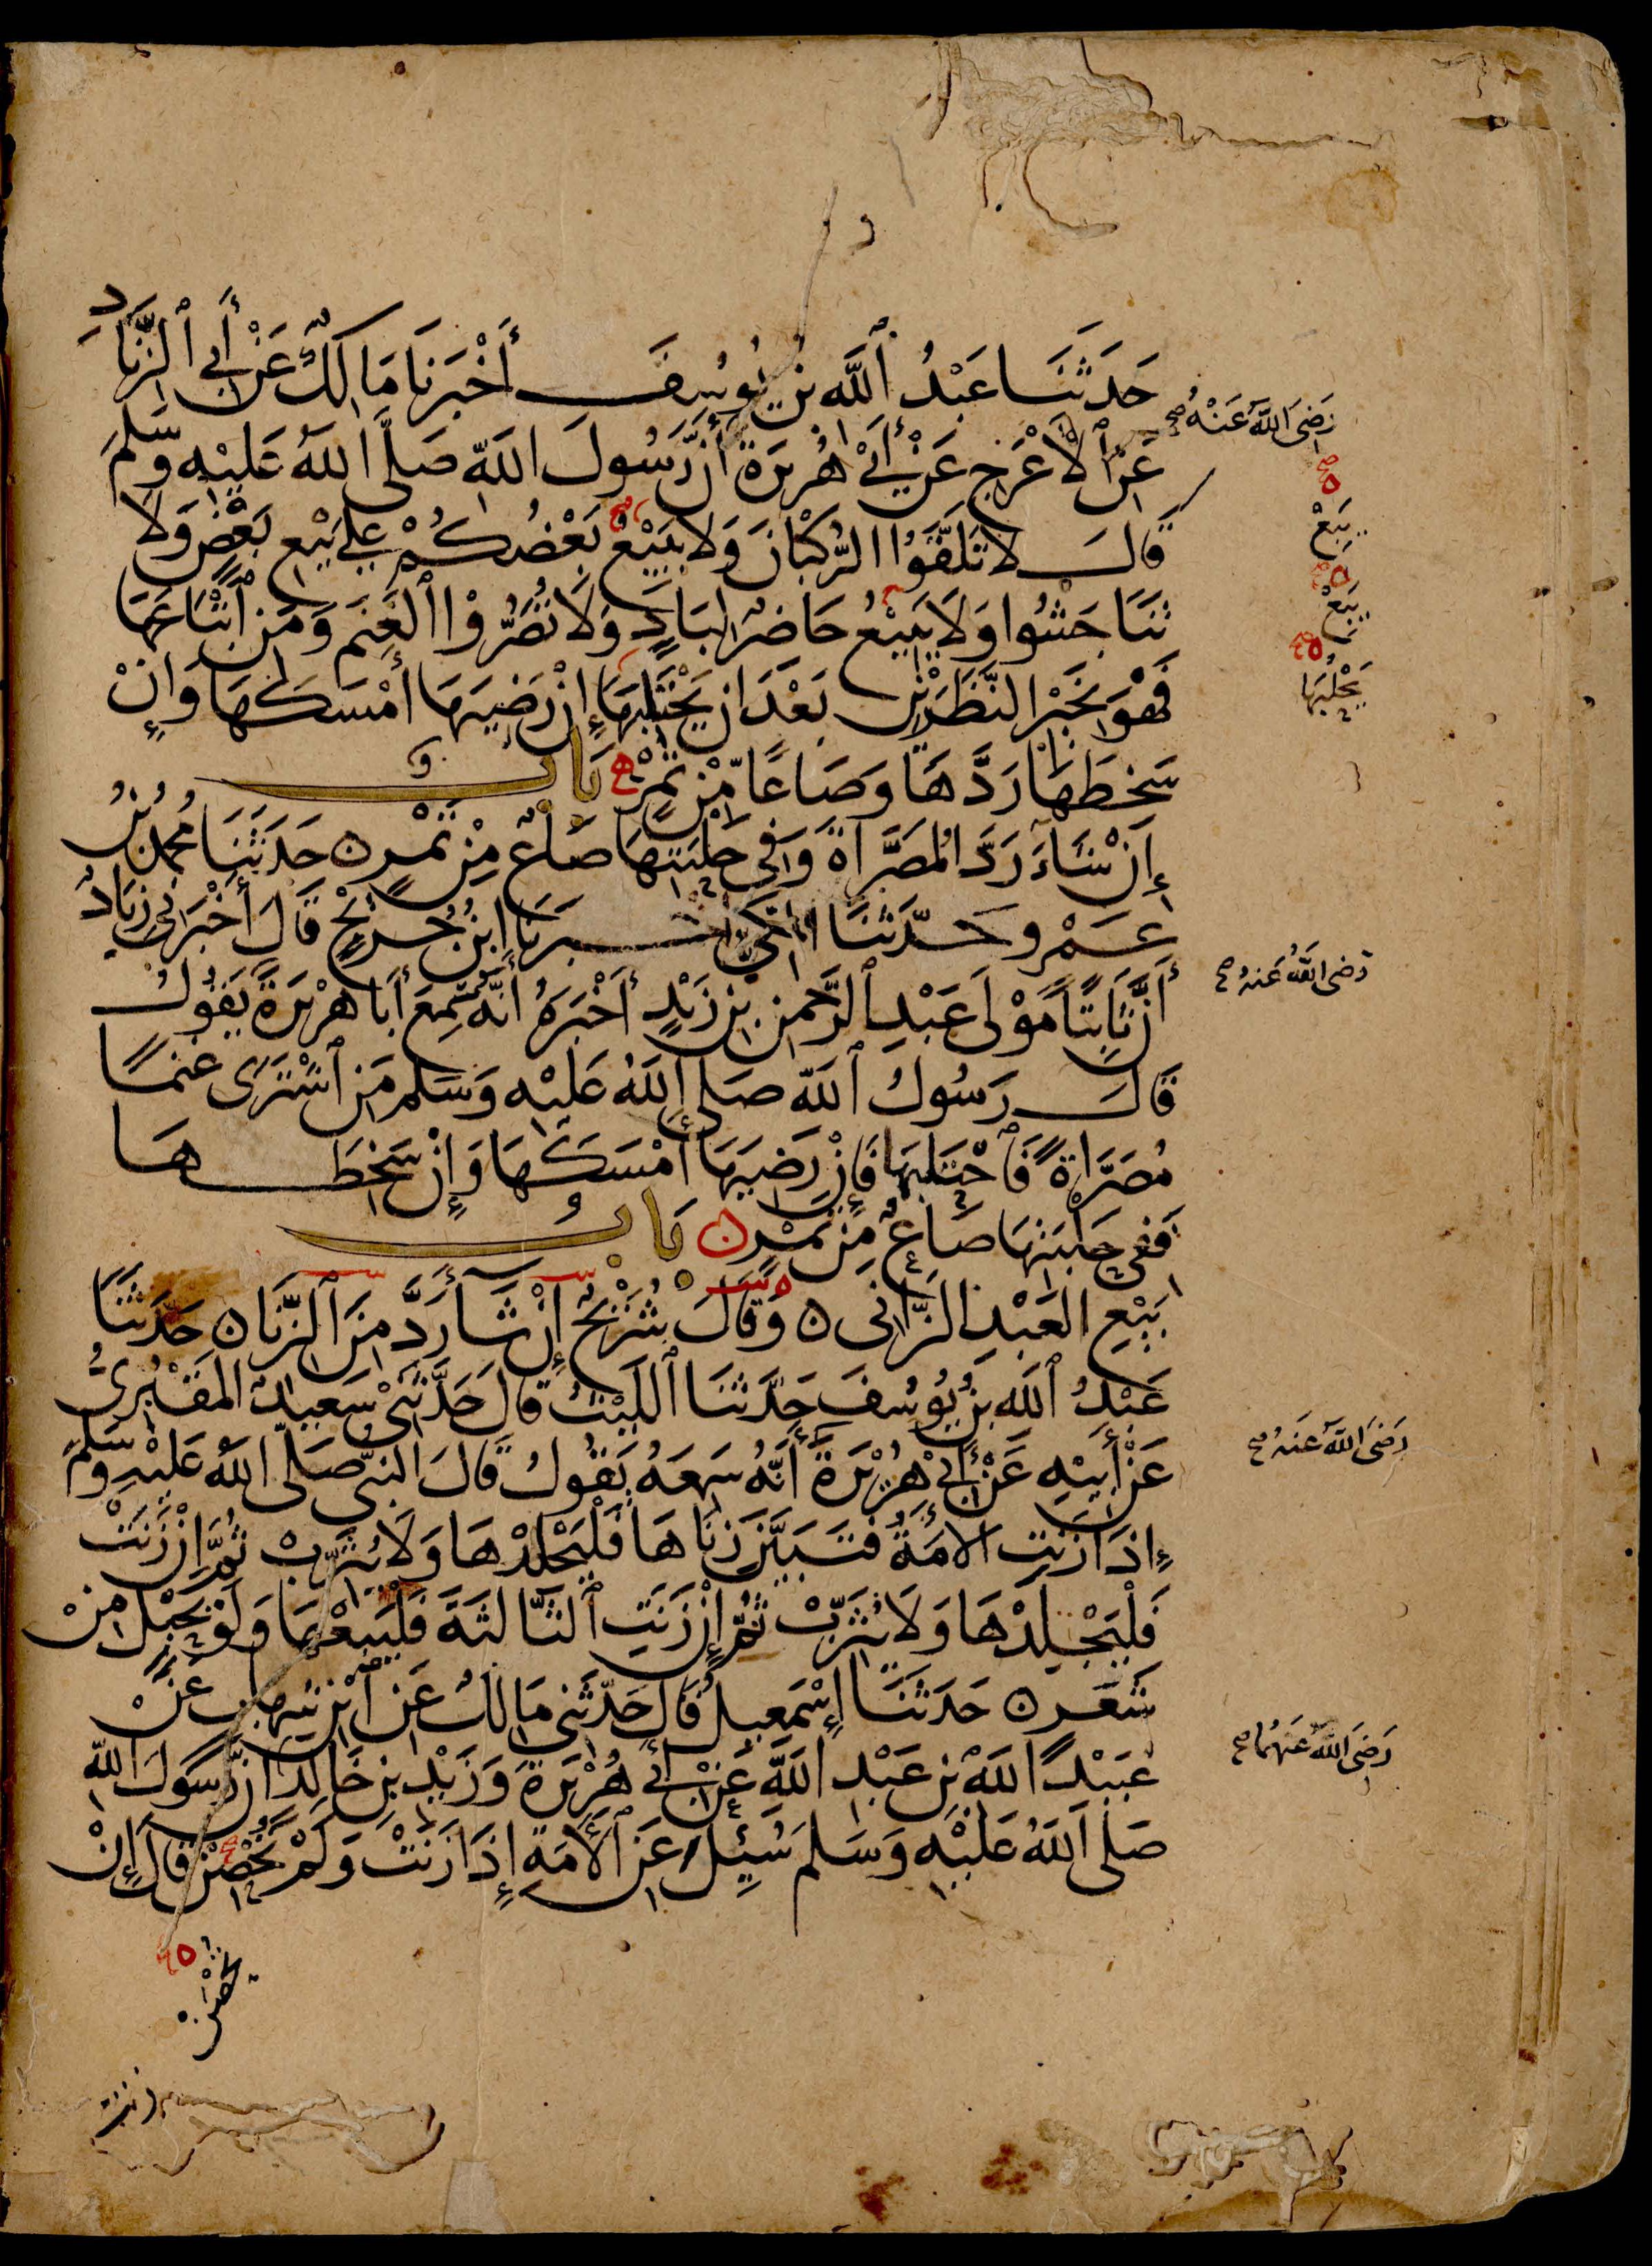 حَدَثَنَا عَبْدُ ٱللَّه بن يُوسُفَ أَخْبَرَنَا مَالِكٌ عَنْ أَبِى ٱلزِّنَادِ
عَنِ ٱلأَعْرَج عَنْ أَبِى هُرَيرَة أَنَّ رَسُولَ اللهِ صَلَّى اللهُ عَلَيْهِ وَسَلمَ
رَضِىَ اللهُ عَنْهُ صح
قَالَ لَا تَلَقَّوُا الرُّكْبَانَ وَلَا يَبِيْعُ بَعْضُكُمْ عَلى بَيْعِ بَعْضٍ وَلَا
يَبِعْ
تَنَاجَشُوا وَلَا يَبِيْعُ حَاضِرٌ لِبَادٍ وَلَا تُصَرُّوْا ٱلغَنَمَ وَمَنِ ٱبْتَاعَهَا
يَبِعْ
فَهْوَ بِخَيْرِ النَّظَرَيْنِ بَعْدَ ان يَحْتَلِبَهَا إِنْ رَضِيَهَا أَمْسَكَهَا وَإِنْ
يَحْلُبَهَا
سَخِطَهَا رَدَّهَا وَصَاعًا مِّنْ تَمْرٍ بَابٌ
إِنْ شَاءَ رَدَّ المُصَرَّاةَ وَفِى حَلْبَتِهَا صَاعٌ مِنْ تَمْرٍ حَدَثَنَا مُحمدُ بْنُ
عَمْرٍو حَدّثَنَا المَكِّىُّ أخبَرَنَا ابْنُ جُرَيْجٍ قَالَ أَخْبَرَنِى زِيَادٌ
أَنَّ ثَابِتًا مَوْلَى عَبْدِ ٱلرَّحمنِ بْنِ زَيْدٍ أَخْبَرَهُ أَنَّهُ سَمِعَ أَبَا هُرَيْرَةَ يَقُولُ
رَضى اللهُ عَنهُ صح
قَالَ رَسُولُ ٱللهِ صَلى اللهُ عَلَيْهِ وَسَلم مَنِ ٱشْتَرَى غَنَمًا
مُصَرَّاةً فَٱحْتَلَبَهَا فَإِنْ رَضِيَهَا أَمْسَكَهَا وَإِنْ سَخِطَهَا
فَفِى حَلْبَتِهَا صَاعٌ مِنْ تَمْرٍ بَابُ
بَيْعِ العَبْدِ الزَّانِى وَقَالَ شُرَيْحٌ إِنْ شَا رَدَّ مِنَ ٱلزِّنَا حَدّثَنَا
عَبْدُ ٱللهِ بنُ يُوسُفَ حَدَّثَنَا ٱللَّيْثُ قَالَ حَدَّثَنِى سَعِيدٌ المَقْبُرِىُّ
عَنْ أَبِيْهِ عَنْ أَبِى هُرَيْرَةَ أَنَّهُ سَمِعَهُ يَقُولُ قَالَ النبىُّ صَلَّى اللهُ عَلَيْهِ وَسَلمَ
رَضِىَ اللهُ عَنهُ صح
إِذَا زَنَتِ الأَمَةُ فَتَبَيَّنَ زِنَاهَا فَلْيَجْلِدْهَا وَلَا يُثَرِّبْ ثُمَّ إِنْ زَنَتْ
فَلْيَجْلِدْهَا وَلَا يُثَرِّبْ ثُمَّ إِنْ زَنَتِ ٱلثَّالِثَةَ فَلْيَبِعْهَا وَلَوْ بِحَبْلٍ مِنْ
شَعَرٍ حَدَثَنَا إِسْمَعِيلُ قَالَ حَدّثَنِى مَالِكٌ عَنِ ابْنِ شِهَابٍ عَنْ
عُبَيْدِ اللهِ بْنِ عَبْدِ اللهِ عَنْ أَبِى هُرَيْرَةَ وَزَيْدِ بنِ خَالِدٍ أَنَّ رَسُولَ اللهِ
رَضِىَ اللهُ عَنهُمَا صح
صَلى اللهُ عَلَيْهِ وَسَلمَ سُئِلَ عَنِ ٱلأَمَةِ إِذَا زَنَتْ وَلَمْ تُحْصِنْ قَالَ إِنْ
تُحْصَنْ
زنت